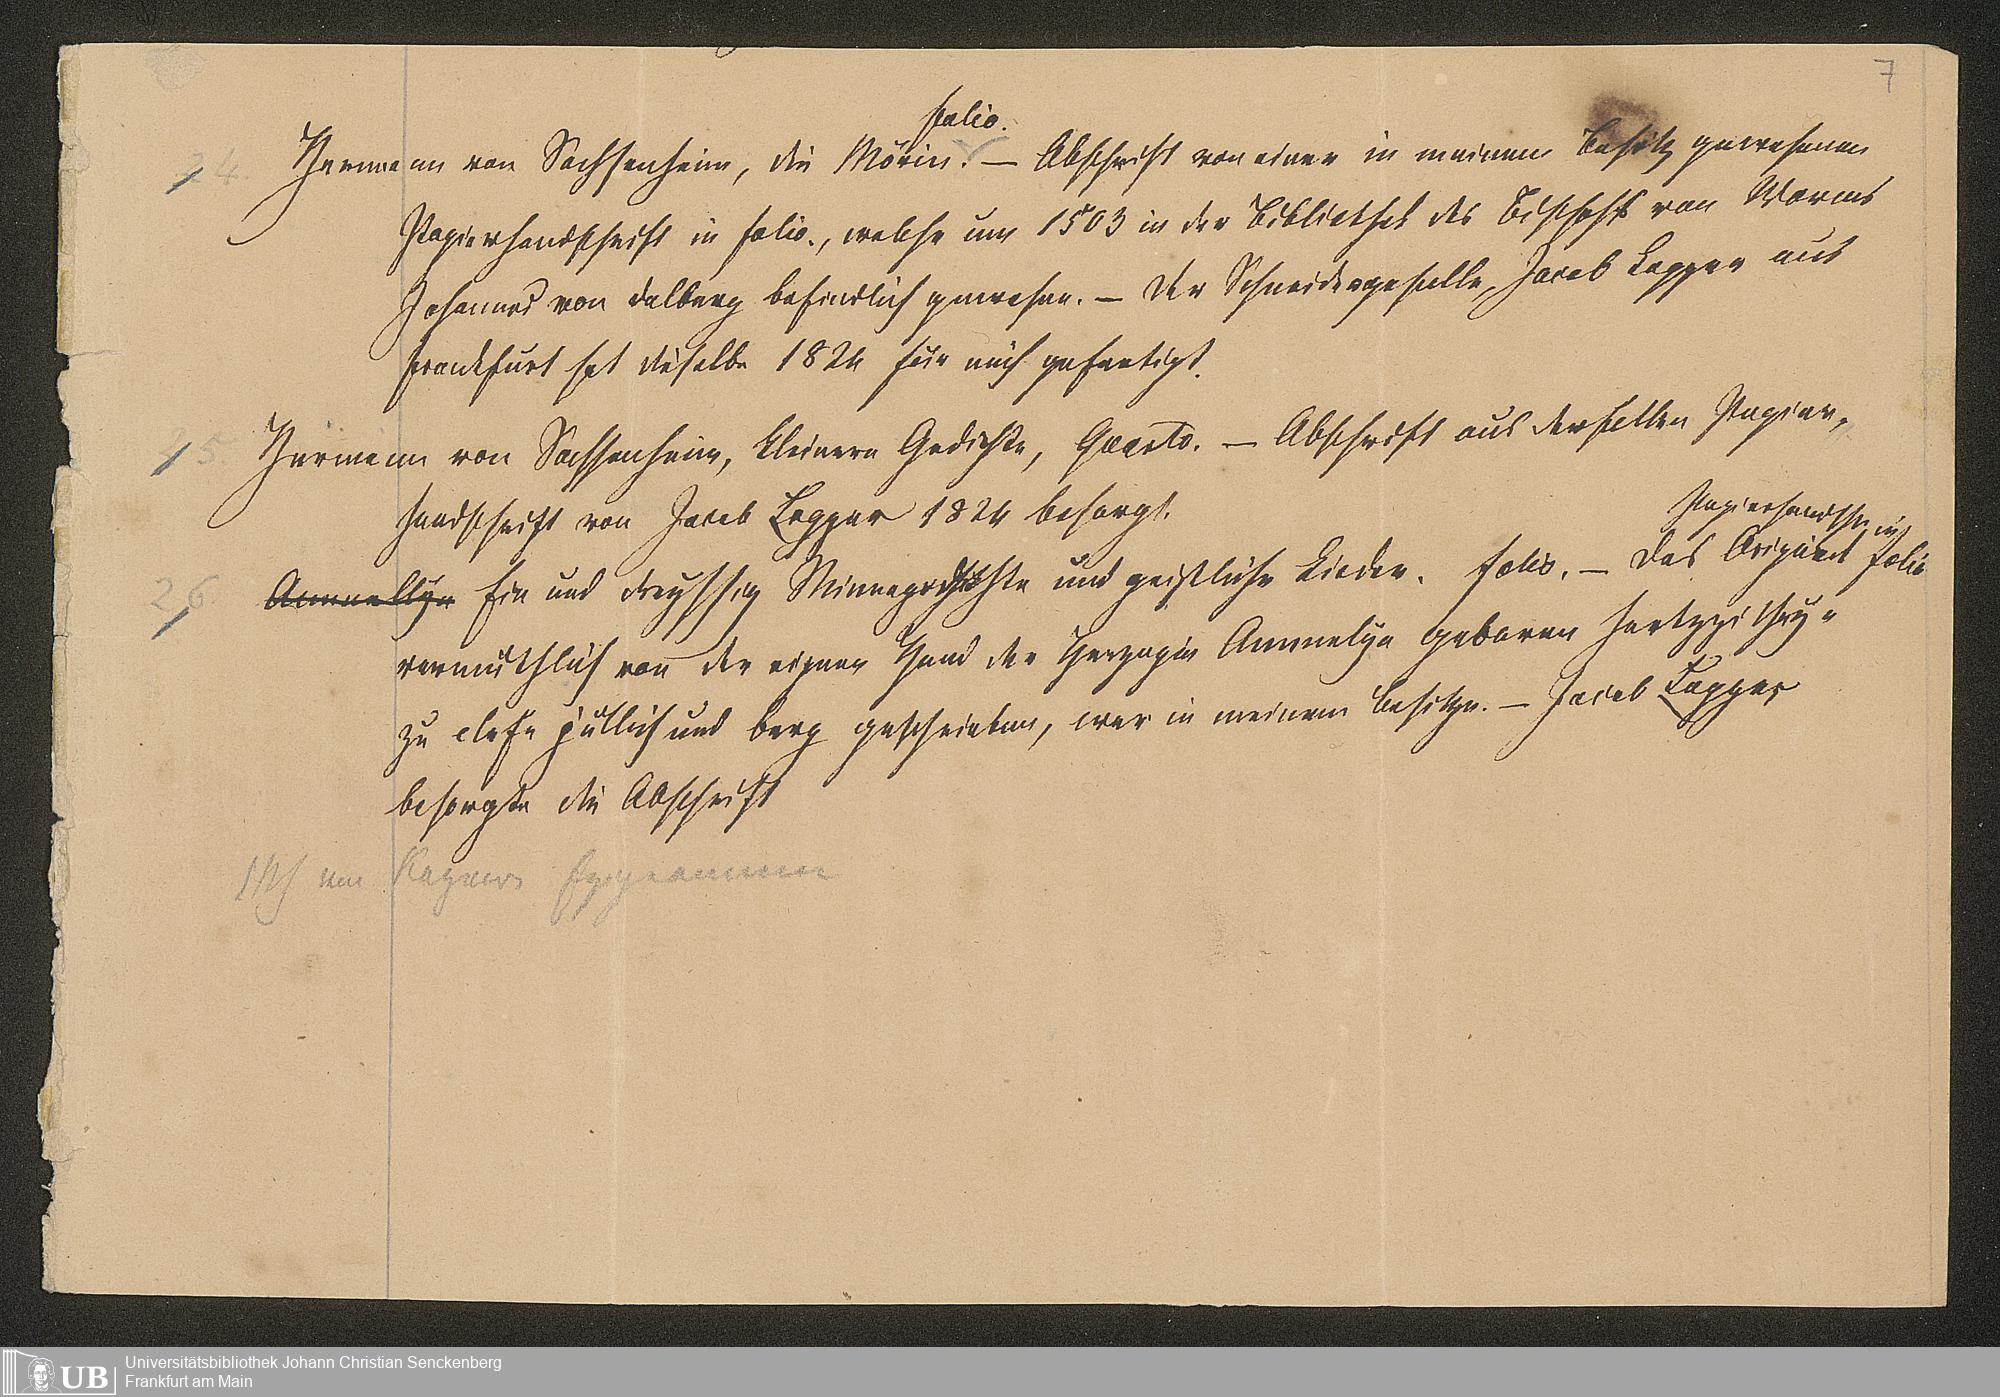 7
folio.
24. Hermann von Sachsenheim, die Mörin. — Abschrift von einer in meinem Besitz gewesenen
Papierhandschrift in folio., welche um 1503 in der Bibliothek des Bischofs von Worms
Johannes von Dalberg befindlich gewesen. — Der Schneidergeselle, Jacob Lapper aus
Frankfurt hat dieselbe 1824 für mich gefertigt.
25. Hermann von Sachsenheim, kleinere Gedichte, Quarto. — Abschrift aus derselben Papier-
handschrift von Jacob Lapper 1824 besorgt.
Papierhandschr. in
26. Ammellyn Ein und dreyssig Minnegedichte und geistliche Lieder. folio. — Das Original folio
vermuthlich von der eignen Hand der Herzogin Ammelya geboren
zu clefe jullich und berg geschrieben, war in meinem Besitze. — Jacob Lapper
besorgte die Abschrift
Universitätsbibliothek Johann Christian Senckenberg
Frankfurt am Main
UB